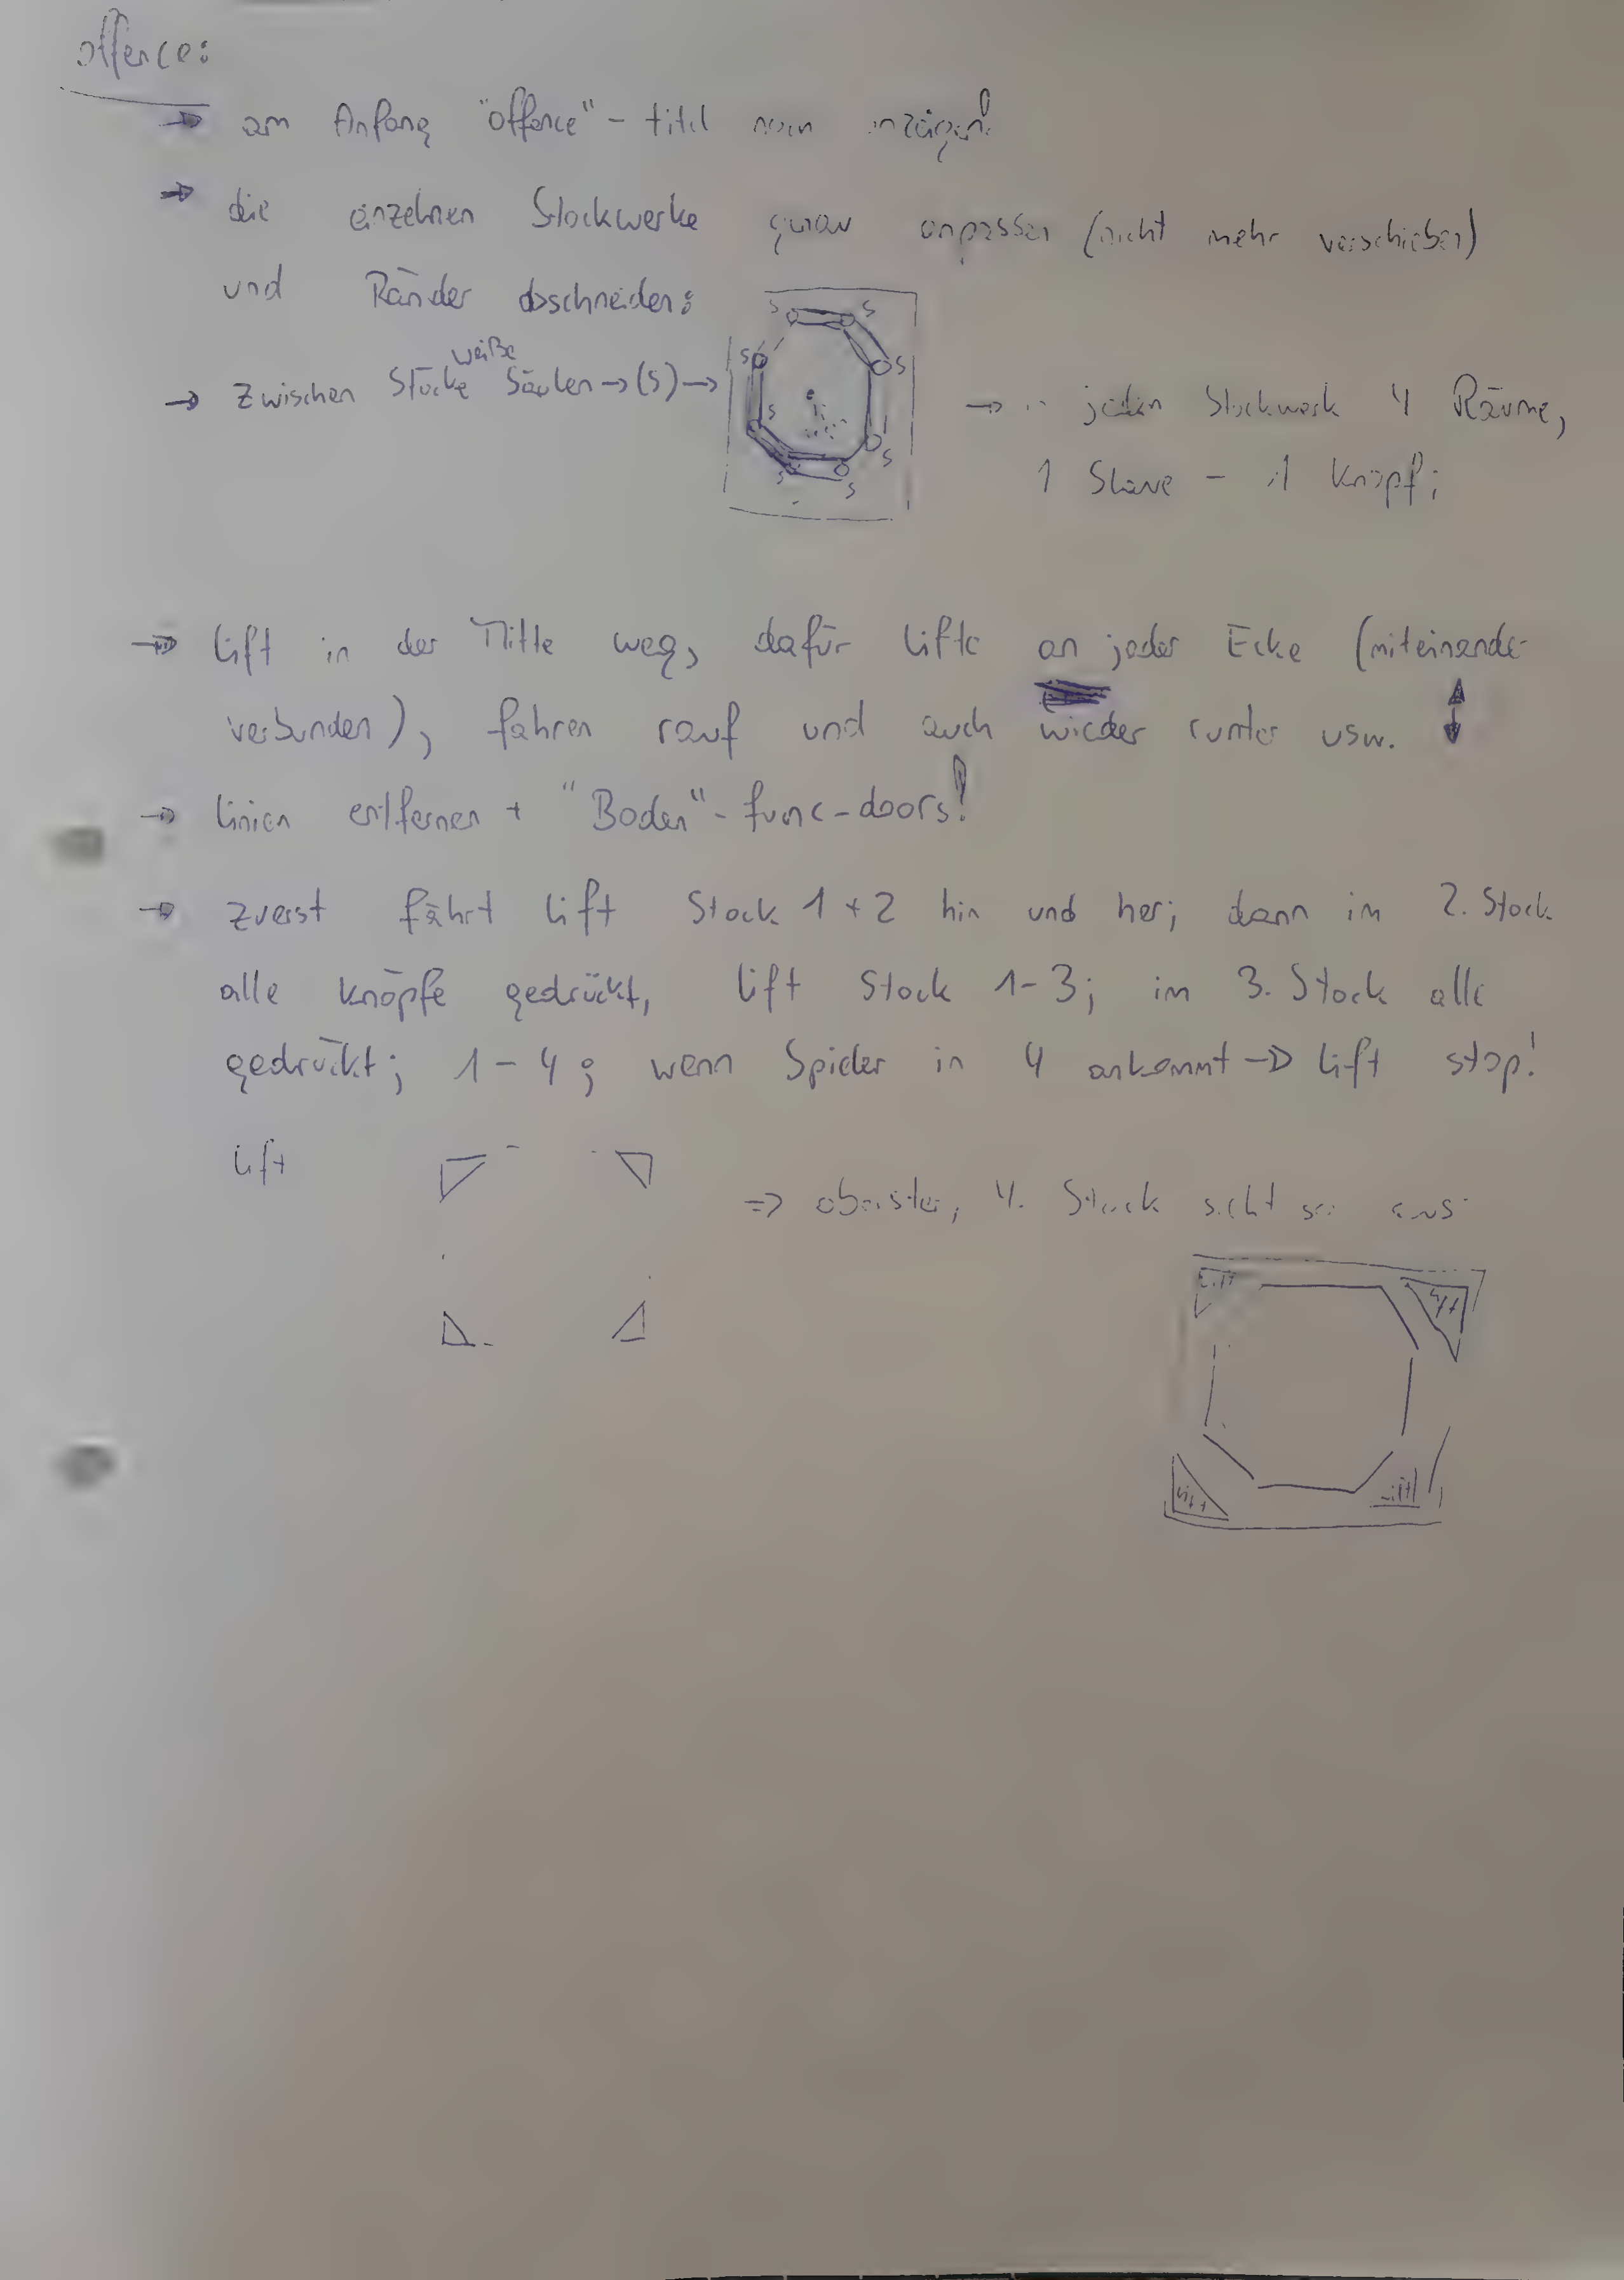 offence:
→ am Anfang "offence" - titel anzeigen!
→ die einzelnen Stockwerke genau anpassen (nicht mehr verschieben)
und Ränder abschneiden:
→ zwischen Stöcke weiße Säulen → (S) →
S S
S S
S S
S S
→ jeden Stockwerk 4 Räume,
1 Slave - 1 Knopf;
→ Lift in der Mitte weg, dafür Lifte an jeder Ecke (miteinander
verbunden), fahren rauf und auch wieder runter usw.
→ Linien entfernen + "Boden"-func-doors!
→ zuerst fährt Lift Stock 1+2 hin und her; dann im 2. Stock
alle Knöpfe gedrückt, Lift Stock 1-3; im 3. Stock alle
gedrückt; 1-4; wenn Spieler in 4 ankommt → Lift stop!
Lift
⇒ oberster, 4. Stock sieht so aus
Lift Lift
Lift Lift